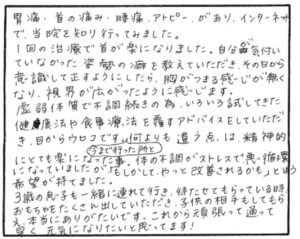 胃痛・首の痛み・腰痛・アトピーがあり、インターネット
で、当院を知り行ってみました。
1回の治療で首が楽になりました。自分が気付い
ていなかった姿勢の癖を教えていただき、その日から
意識して正すようにしたら、胸がつまる感じが無く
なり、視界が広がったように感じます。
虚弱体質で不調続きの為、いろいろ試してきた
健康法や食事療法を覆すアドバイスをしていただ
き、目からウロコです。何よりも違う点は、精神的
今まで行った所と
にとても楽になった事。体の不調がストレスで悪循環
になっていましたが「もしかして、やっと改善されるかも」という
希望が持てました。
3歳の息子も一緒に連れて行き、待たせてもらっている時
おもちゃをたくさん出していただき、子供の相手もしてもら
え、本当にありがたいです。これから頑張って通って
早く元気になりたいと思ってます!